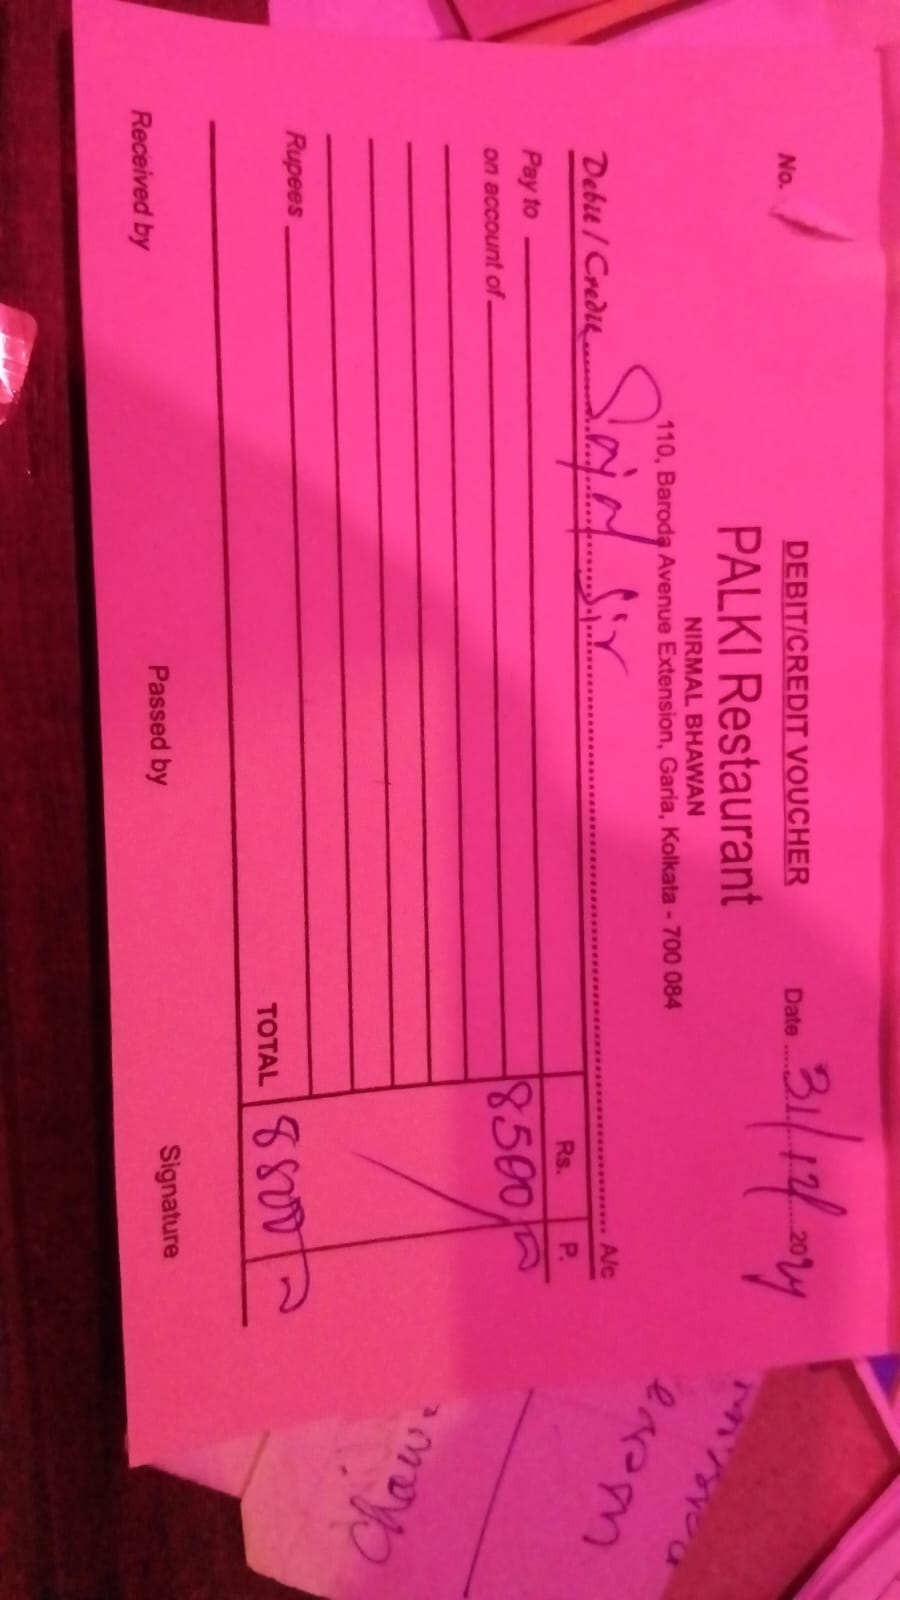 DEBIT/CREDIT VOUCHER
No. Date 31/12/2024
PALKI Restaurant
NIRMAL BHAWAN
110, Baroda Avenue Extension, Garia, Kolkata - 700 084
Debit / Credit Sir A/c
Rs. P.
Pay to
on account of 8500
Rupees TOTAL
Received by Passed by Signature